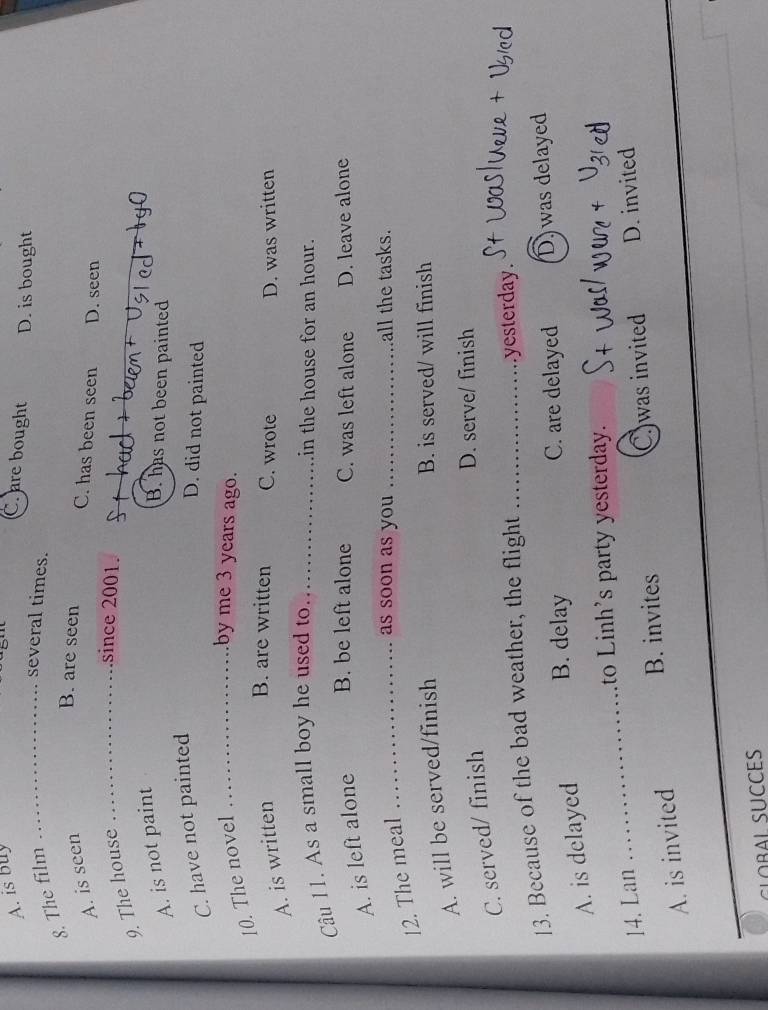 A. is buy C. are bought D. is bought
8. The film .................... several times.
A. is seen B. are seen C. has been seen D. seen
9. The house ....................since 2001. S + had + been + V3/ed + by O
A. is not paint B. has not been painted
C. have not painted D. did not painted
10. The novel ....................by me 3 years ago.
A. is written B. are written C. wrote D. was written
Câu 11. As a small boy he used to....................in the house for an hour.
A. is left alone B. be left alone C. was left alone D. leave alone
12. The meal .................... as soon as you ....................all the tasks.
A. will be served/finish B. is served/ will finish
C. served/ finish D. serve/ finish
13. Because of the bad weather, the flight ....................yesterday. S+ was/were + V3/ed
A. is delayed B. delay C. are delayed D. was delayed
14. Lan ....................to Linh's party yesterday. S+ was/ were + V3/ed
A. is invited B. invites C. was invited D. invited
GLOBAL SUCCES